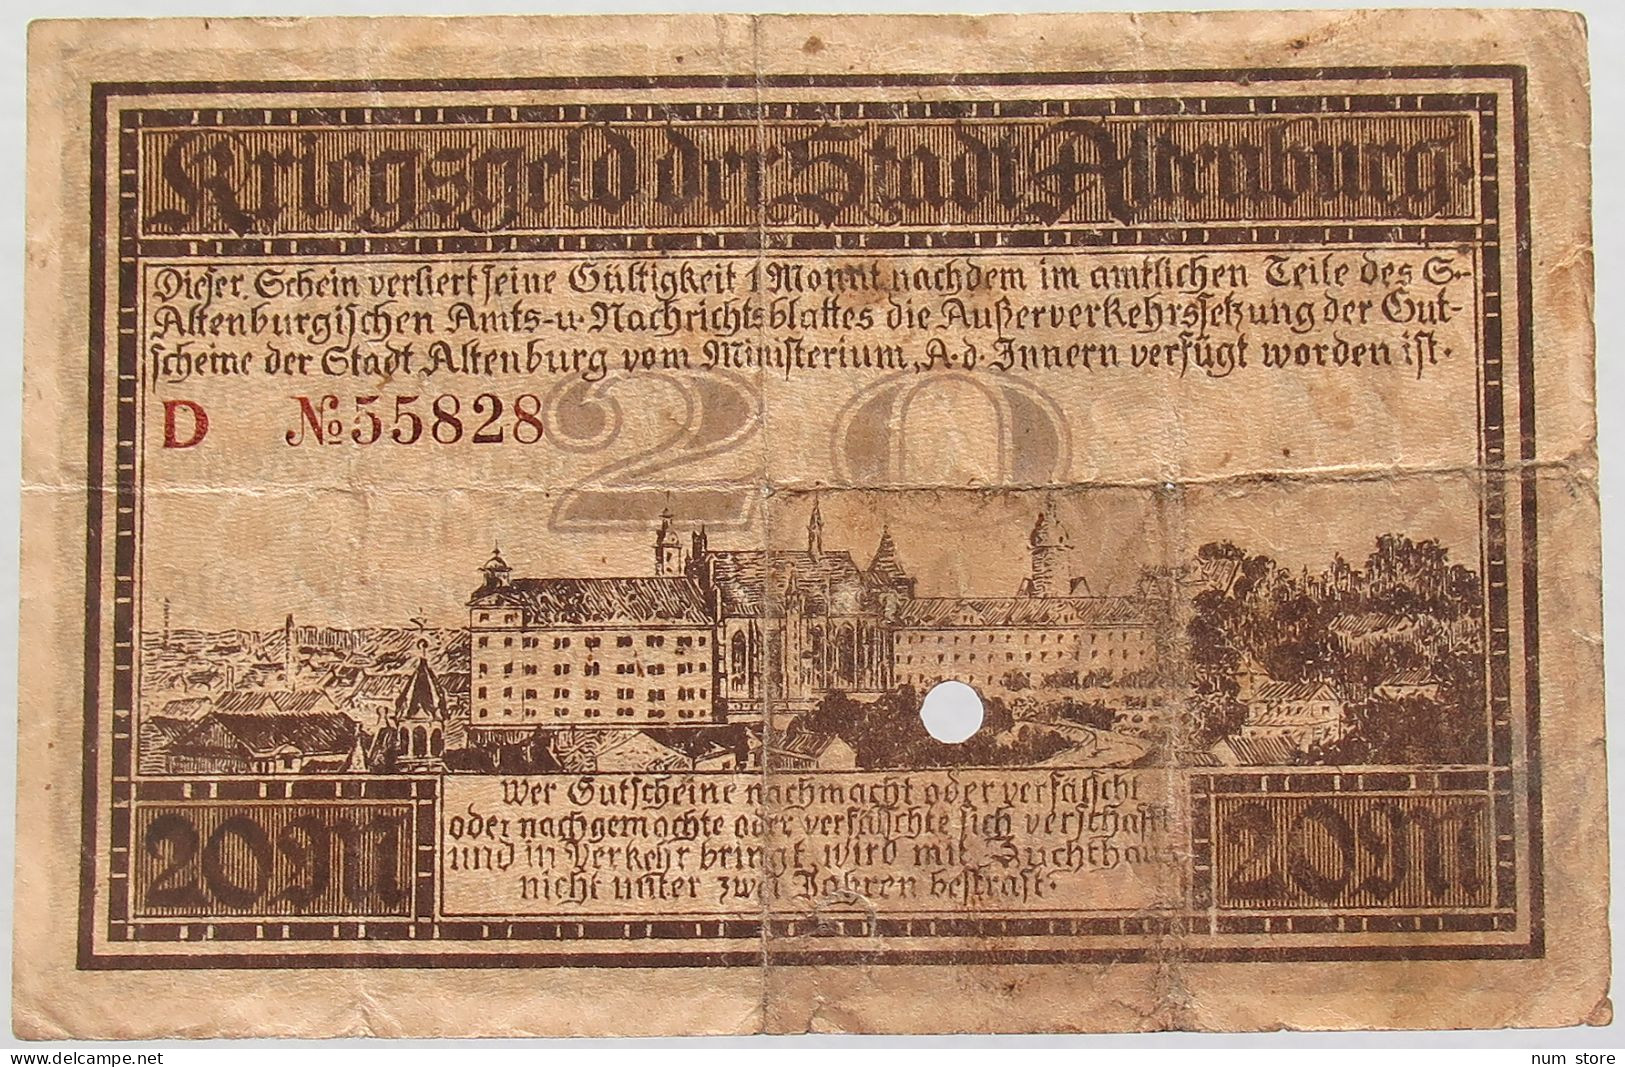 Kriegsgeld der Stadt Altenburg
Dieser Schein verliert seine Gültigkeit 1 Monat nachdem im amtlichen Teile des S.-
Altenburgischen Amts- u. Nachrichtsblattes die Außerverkehrssetzung der Gut-
scheine der Stadt Altenburg vom Ministerium, A. d. Innern verfügt worden ist.
20
D № 55828
Wer Gutscheine nachmacht oder verfälscht
oder nachgemachte oder verfälschte sich verschafft
und in Verkehr bringt, wird mit Zuchthaus
nicht unter zwei Jahren bestraft.
20M
20M
delcampe.net
num store